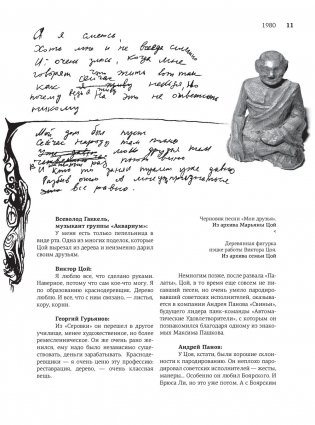 1980 11
А я смеюсь,
Хоть мне и не всегда смешно
И очень злюсь, когда мне
говорят
Что жить вот так
как я сейчас нельзя, но
почему? Ведь я На это не ответить
никому
Мой дом был пуст
Сейчас народу там полно
мои друзья там
пьют вино
И кто-то занял туалет уже давно
Разбив окно А мне
все равно.
Всеволод Гаккель,
музыкант группы «Аквариум»:
У меня есть только пепельница в
виде рта. Одна из многих поделок, которые
Цой вырезал из дерева и неизменно дарил
своим друзьям.
Виктор Цой:
Я люблю все, что сделано руками.
Наверное, потому что сам кое-что могу. Я
по образованию краснодеревщик. Дерево
люблю. И все, что с ним связано, — листья,
кору, корни.
Георгий Гурьянов:
Из «Серовки» он перешел в другое
училище, менее художественное, но более
ремесленническое. Он же очень рано же-
нился, ему надо было независимо суще-
ствовать, деньги зарабатывать. Краснode-
ревщики — я очень ценю эту профессию:
реставрация, дерево, — очень классная
вещь.
Черновик песни «Мои друзья».
Из архива Марьяны Цой
Деревянная фигурка
ниже работы Виктора Цоя.
Из архива семьи Цой
Немногим позже, после развала «Па-
латы», Цой, в то время еще совсем не пи-
савший песен, но очень умело пародиро-
вавший советских исполнителей, оказыва-
ется в компании Андрея Панова «Свиньи»,
будущего лидера панк-команды «Автомати-
ческие Удовлетворители», с которым он
познакомился благодаря одному из знако-
мых Максима Пашкова.
Андрей Панов:
У Цоя, кстати, были хорошие склонно-
сти к пародированию. Он неплохо пароди-
ровал советских исполнителей — жесты,
манеры... Особенно он любил Боярского. И
Брюса Ли, но это уже потом. А с Боярским